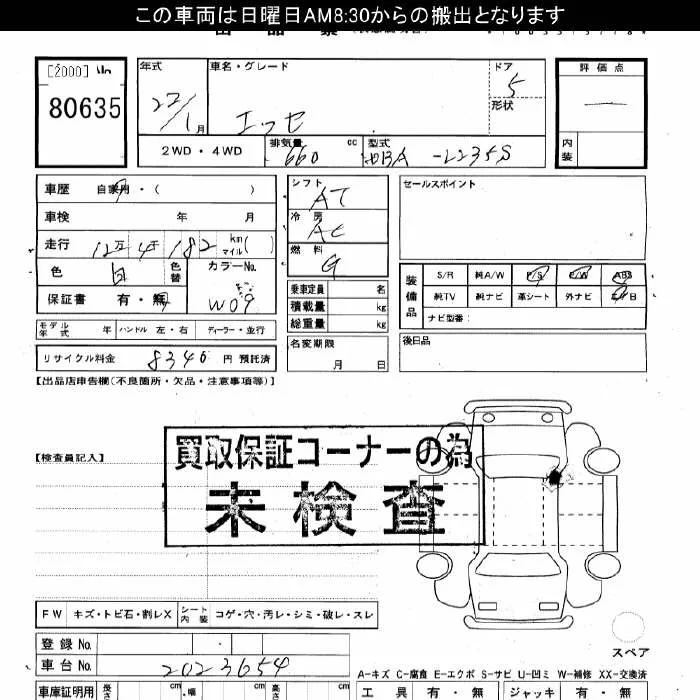 この車両は日曜日AM8:30からの搬出となります
[2000]
80635
年式
22/1月
車名・グレード
エッセ
ドア
5
形状
評価点
内装
2WD・4WD
排気量
660 cc
型式
DBA-L235S
車歴 自家用・( )
車検 年 月
走行 12万4千182 km マイル( )
色 白 色替
カラーNo.
W09
保証書 有・無
モデル年式 年 ハンドル 左・右 ディーラー・並行
リサイクル料金 8340 円 預託済
シフト
AT
冷房
AC
燃料
G
乗車定員 名
積載量 kg
総重量 kg
名変期限
月 日
セールスポイント
装備品
S/R 純A/W P/S P/W ABS
純TV 純ナビ 革シート 外ナビ エアB
ナビ型番:
後日品
【出品店申告欄(不良箇所・欠品・注意事項等)】
【検査員記入】
買取保証コーナーの為
未検査
FW キズ・トビ石・割レX シート内装 コゲ・穴・汚レ・シミ・破レ・スレ
登録 No.
車台 No. 2023654
スペア
A-キズ C-腐食 E-エクボ S-サビ U-凹ミ W-補修 XX-交換済
車庫証明用 長さ cm 幅 cm 高さ cm
工具 有・無 ジャッキ 有・無